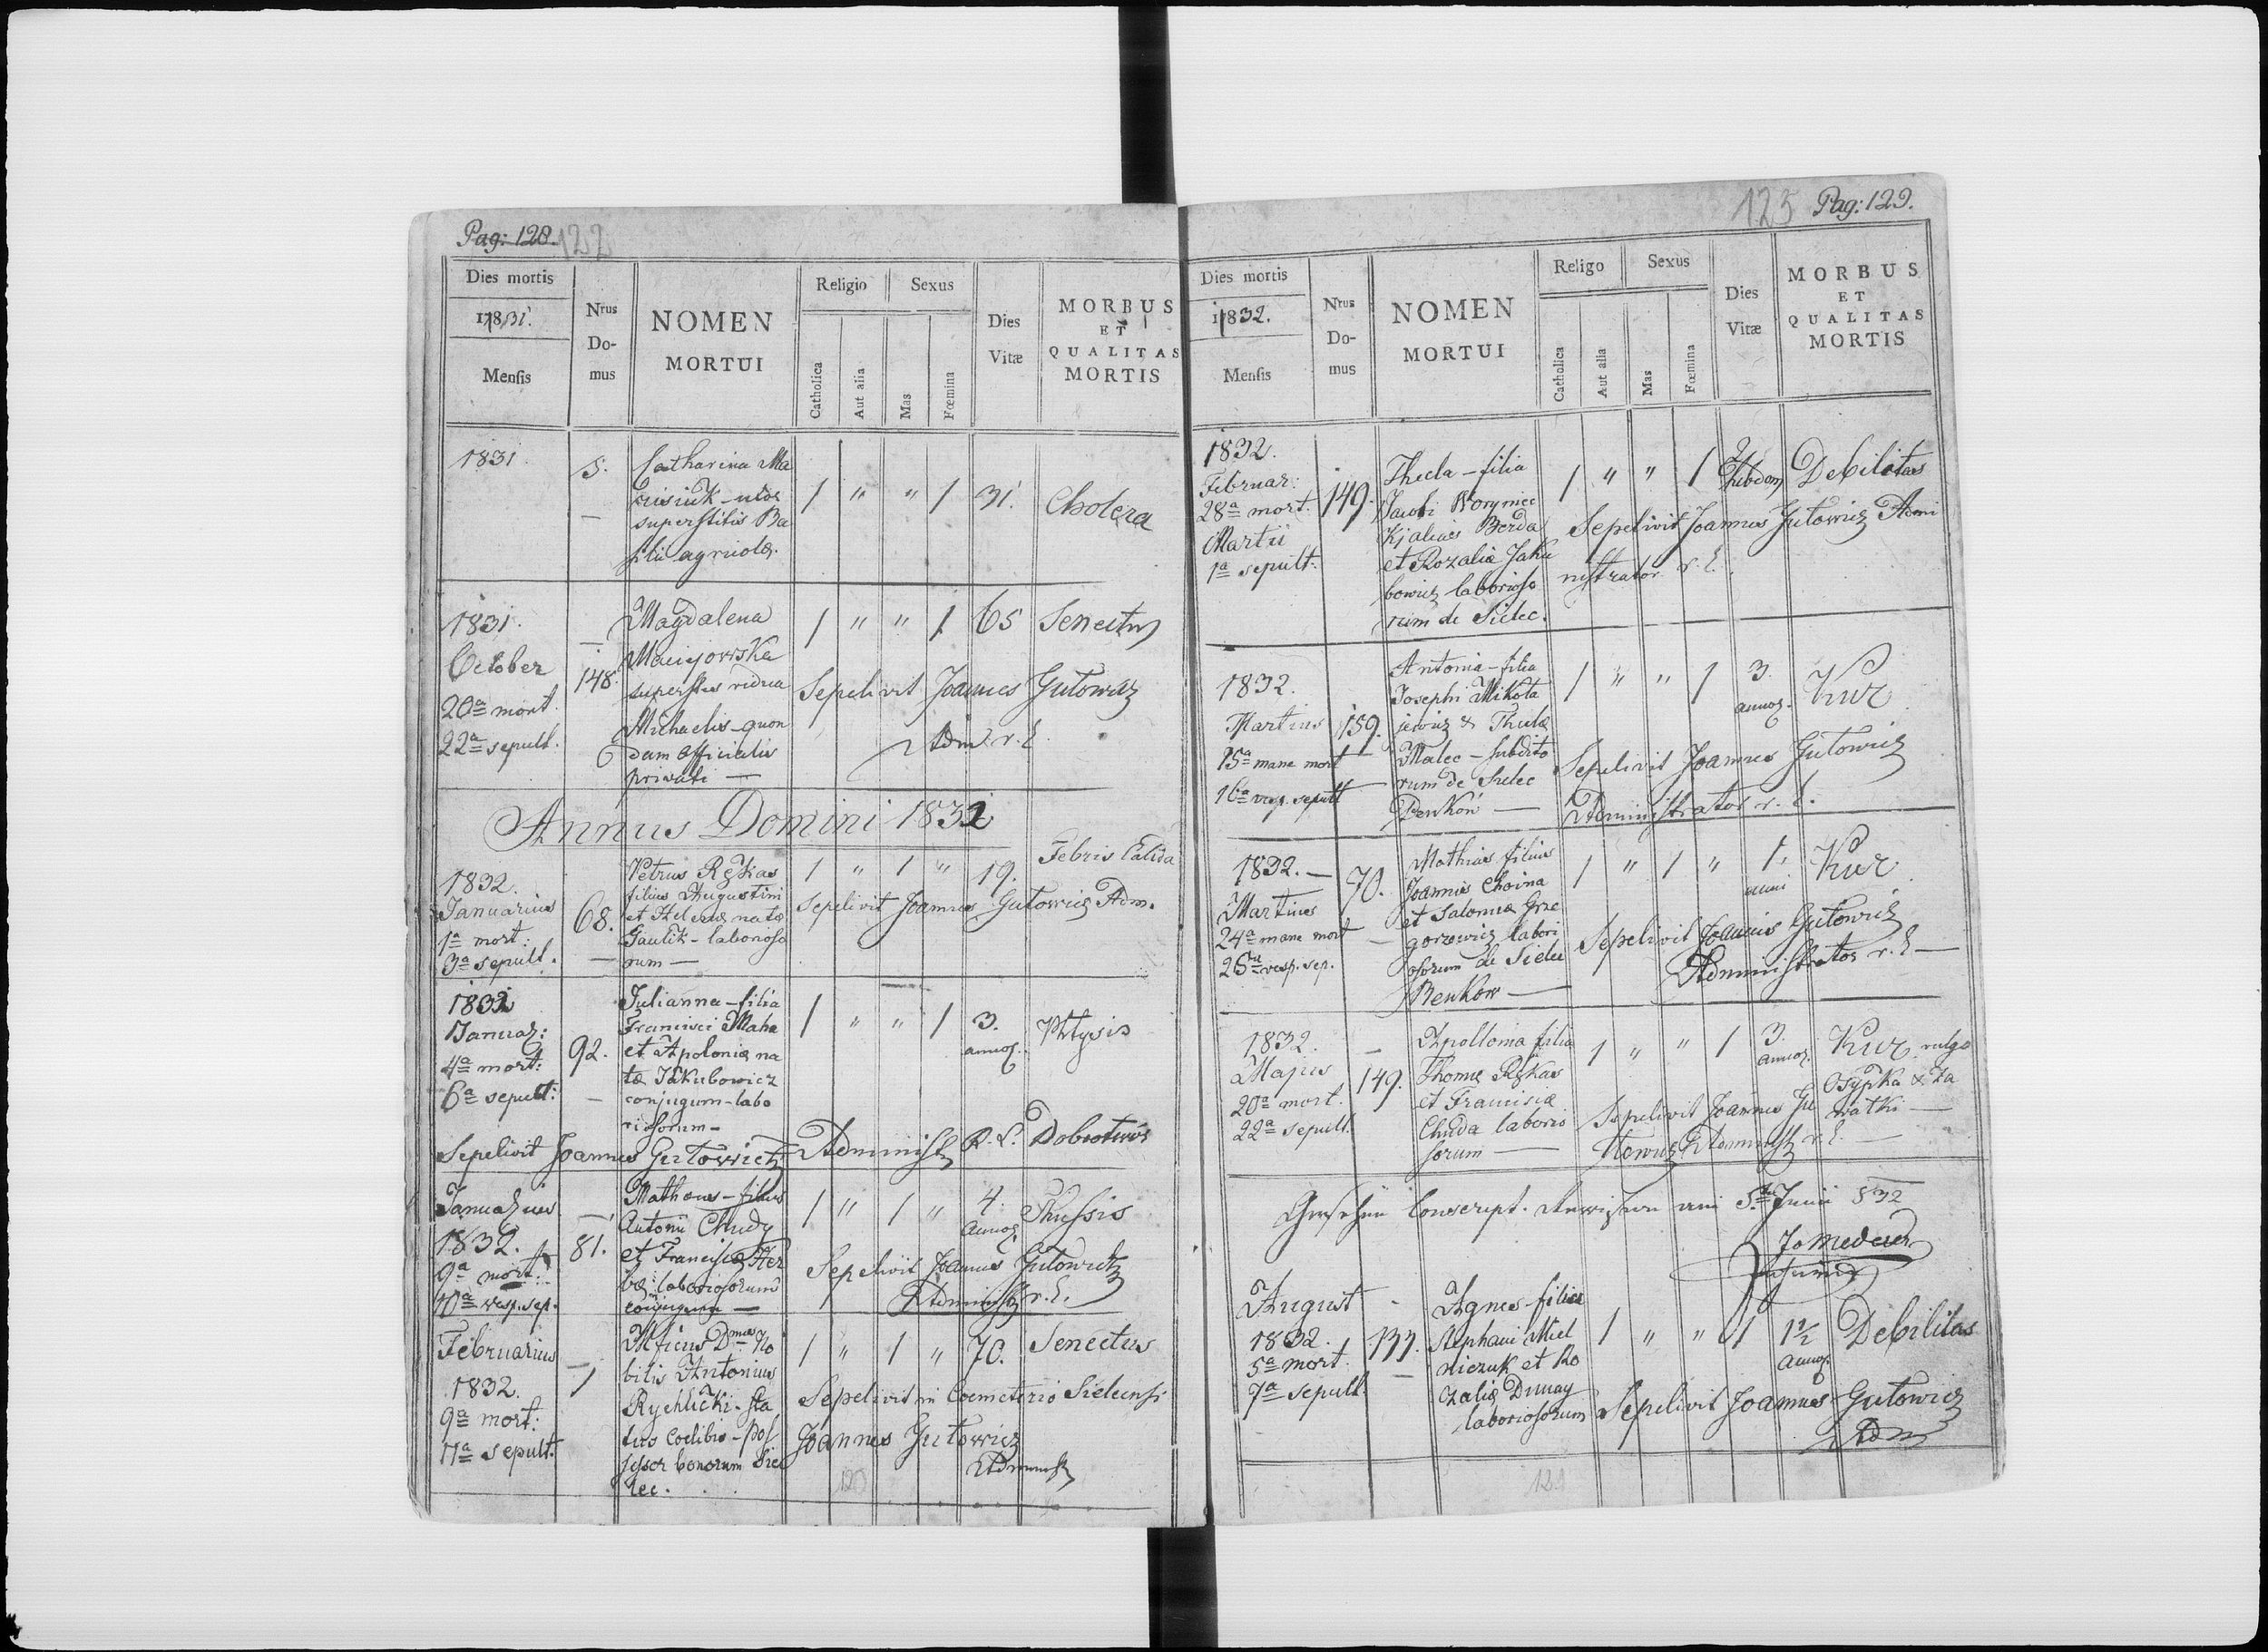 Pag: 128. 122
Dies mortis
1831.
Mensis
Nrus
Do-
mus
NOMEN
MORTUI
Religio
Sexus
Catholica
Aut alia
Mas
Fœmina
Dies
Vitæ
MORBUS
ET
QUALITAS
MORTIS
1831. 5. Catharina Ma
superstitis Ba
silii agricolæ.
1 " " 1 31. Cholera
1831.
October
20a mort.
22a sepult.
148.
Magdalena
Maciejowska
superstes vidua
Michaelis quon
dam officialis
privati —
1 " " 1 65 Senectus
Sepelivit Joannes Gutowicz
Adm. r. l.
Annus Domini 1832
1832.
Januarius
1a mort:
3a sepult.
68.
Petrus Rękas
filius Augustini
et Helenæ natæ
Gaulik - laborioso
rum —
1 " 1 " 19. Febris Calida
Sepelivit Joannes Gutowicz Adm.
1832
Januar:
4a mort:
6a sepult:
92.
Julianna - filia
Francisci Maha
et Apoloniæ na
tæ Jakubowicz
conjugum - labo
riosorum -
1 " " 1 3. annor. Phtysis
Sepelivit Joannes Gutowicz Administr. R. L. Dobrotwór
Januarius
1832.
9a mort:
10a vesp. sep.
81.
Mathæus - filius
Antonii Chudy
et Franciscæ Her
bæ laboriosorum
conjugum —
1 " 1 " 4 annor. Thussis
Sepelivit Joannes Gutowicz
Administr. r. l.
Februarius
1832.
9a mort:
11a sepult.
1
Mficus Dnus No
bilis Antonius
Rychlicki - sta
tus coelibis - pos
sessor bonorum Sie
lec.
1 " 1 " 70. Senectus
Sepelivit in Coemeterio Sielecensi
Joannes Gutowicz
Administr.
123 Pag: 129.
Dies mortis
1832.
Mensis
Nrus
Do-
mus
NOMEN
MORTUI
Religo
Sexus
Catholica
Aut alia
Mas
Fœmina
Dies
Vitæ
MORBUS
ET
QUALITAS
MORTIS
1832.
Februar:
28a mort.
Martii
1a sepult:
149.
Thecla - filia
Jacobi Woryniec
alias Berda
et Rozaliæ Jaku
bowicz laborioso
rum de Sielec.
1 " " 1 2 hebdom Debilitas
Sepelivit Joannes Gutowicz Admi
nistrator r. l.
1832.
Martius
15a mane mort
16a vesp. sepult
159.
Antonia - filia
Josephi Mikoła
jewicz & Theclæ
Malec - subdito
rum de Sielec
Benkow —
1 " " 1 3. annor. Kur
Sepelivit Joannes Gutowicz
Administrator r. l.
1832. —
Martius
24a mane mort
26ta vesp. sep.
70.
Mathias filius
Joannis Choina
et Salomeæ Grze
gorzewicz labori
osorum de Sielec
Benkow —
1 " 1 " 1. anni Kur
Sepelivit Joannes Gutowicz
Administrator r. l. —
1832.
Majus
20a mort.
22a sepult.
149.
Apollonia filia
Thomæ Rękas
et Franciscæ
Chuda laborio
sorum —
1 " " 1 3. annor. Kur vulgo
Osypka
Sepelivit Joannes Gu
towicz Administr. r. l. —
Gesehen Conscript. Revision am 5ten Junii 832
August
1832.
5a mort.
7a sepult.
137.
Agnes - filia
Stephani Miel
niczuk et Ro
zaliæ Dunay
laboriosorum
1 " " 1 1 1/2 annor. Debilitas
Sepelivit Joannes Gutowicz
Adm